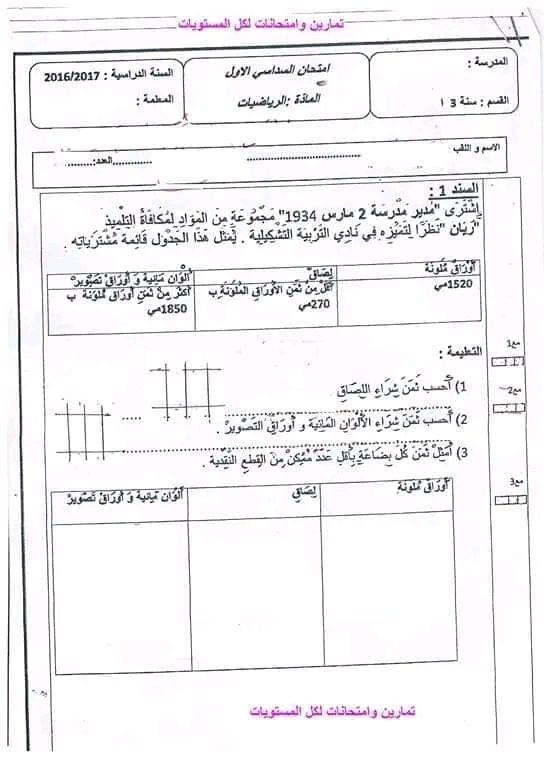 تمارين وامتحانات لكل المستويات
المدرسة :
القسم : سنة 3 ا
امتحان السداسي الاول
المادة :الرياضيات
السنة الدراسية : 2016/2017
المعلمة :
الاسم و اللقب
.......................................
..............العدد:.........
السند 1 :
اِشْتَرَى "مُدِير مَدْرسَة 2 مارس 1934" مَجْمُوعَة مِنَ المَوَاد لِمُكَافَأَةْ التِلْمِيذِ
"رَيَان "نظرًا لِتَمَيُزِهِ فِي نَادِي التَرْبِيَة التَشْكِيلِية . يُمَثِل هَذَا الجَدْوَل قَائِمَة مُشْتَرَيَاتِهِ .
أوْرَاق مُلَونَة
لِصَاق
أَلْوَان مَائِية وَ أَوْرَاق تَصْوِيرْ
1520مي
أقَلْ مِنْ ثَمَنِ الأوْرَاق المُلَونَة بِ
270مي
أكْثَر مِنْ ثَمَنِ أوْرَاق مُلَونَة بِ
1850مي
مع1
التعليمة :
1) أَحسب ثَمَنَ شِرَاءِ اللصَاقِ
مع2
2) أَحسب ثَمَنَ شِرَاءِ الأَلْوَانِ المَائِيَة وَ أوْرَاقِ التَصْوِيرْ .
3) أمَثِلُ ثَمَنَ كُلِ بِضَاعَةٍ بِأَقَلِ عَدَدٍ مُمْكِنْ مِنَ القِطَعِ النَقْدِية .
مع3
أوْرَاق مُلونَة
لِصَاق
أَلْوَان مَائية وَ أوْرَاق تَصْوِيرْ
تمارين وامتحانات لكل المستويات